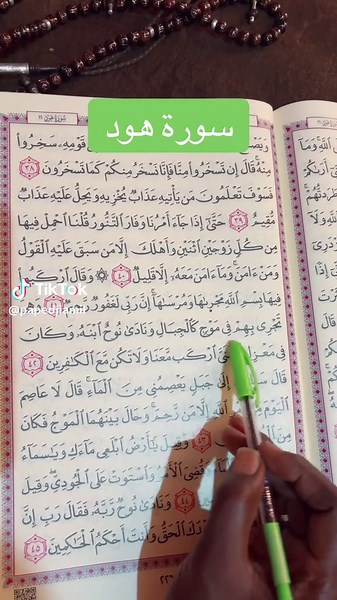 سورة هود
قَوْمِهِۦ سَخِرُوا۟
مِنْهُ قَالَ إِن تَسْخَرُوا۟ مِنَّا فَإِنَّا نَسْخَرُ مِنكُمْ كَمَا تَسْخَرُونَ ٣٨
فَسَوْفَ تَعْلَمُونَ مَن يَأْتِيهِ عَذَابٌ يُخْزِيهِ وَيَحِلُّ عَلَيْهِ عَذَابٌ
مُّقِيمٌ ٣٩ حَتَّىٰٓ إِذَا جَآءَ أَمْرُنَا وَفَارَ ٱلتَّنُّورُ قُلْنَا ٱحْمِلْ فِيهَا
مِن كُلٍّ زَوْجَيْنِ ٱثْنَيْنِ وَأَهْلَكَ إِلَّا مَن سَبَقَ عَلَيْهِ ٱلْقَوْلُ
وَمَنْ ءَامَنَ وَمَآ ءَامَنَ مَعَهُۥٓ إِلَّا قَلِيلٌ ٤٠ ۞ وَقَالَ ٱرْكَبُوا۟
فِيهَا بِسْمِ ٱللَّهِ مَجْر۪ىٰهَا وَمُرْسَىٰهَآ إِنَّ رَبِّى لَغَفُورٌ رَّحِيمٌ
تَجْرِى بِهِمْ فِى مَوْجٍ كَٱلْجِبَالِ وَنَادَىٰ نُوحٌ ٱبْنَهُۥ وَكَانَ
فِى مَعْزِلٍ ٱرْكَب مَّعَنَا وَلَا تَكُن مَّعَ ٱلْكَـٰفِرِينَ ٤٢
قَالَ إِلَىٰ جَبَلٍ يَعْصِمُنِى مِنَ ٱلْمَآءِ قَالَ لَا عَاصِمَ
ٱلْيَوْمَ مِنْ ٱللَّهِ إِلَّا مَن رَّحِمَ وَحَالَ بَيْنَهُمَا ٱلْمَوْجُ فَكَانَ
مِنَ ٤٣ وَقِيلَ يَـٰٓأَرْضُ ٱبْلَعِى مَآءَكِ وَيَـٰسَمَآءُ
وَقُضِىَ ٱلْأَمْرُ وَٱسْتَوَتْ عَلَى ٱلْجُودِىِّ وَقِيلَ
٤٤ وَنَادَىٰ نُوحٌ رَّبَّهُۥ فَقَالَ رَبِّ إِنَّ
ٱلْحَقُّ وَأَنتَ أَحْكَمُ ٱلْحَـٰكِمِينَ ٤٥
TikTok